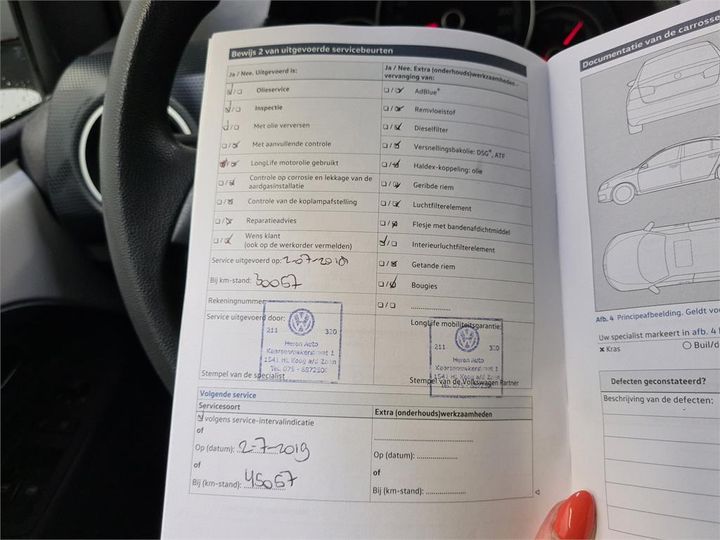 Bewijs 2 van uitgevoerde servicebeurten
Ja / Nee. Uitgevoerd is:
Olieservice
Inspectie
Met olie verversen
Met aanvullende controle
LongLife motorolie gebruikt
Controle op corrosie en lekkage van de
aardgasinstallatie
Controle van de koplampafstelling
Reparatieadvies
Wens klant
(ook op de werkorder vermelden)
Service uitgevoerd op:
Bij km-stand: 30067
Rekeningnummer
Service uitgevoerd door:
211 320
Heron Auto
1541 HL Koog a/d Zaan
Stempel van de specialist
Ja / Nee. Extra (onderhouds)werkzaamheden -
vervanging van:
AdBlue®
Remvloeistof
Dieselfilter
Versnellingsbakolie: DSG®, ATF
Haldex-koppeling: olie
Geribde riem
Luchtfilterelement
Flesje met bandenafdichtmiddel
Interieurluchtfilterelement
Getande riem
Bougies
....................
LongLife mobiliteitsgarantie:
211 320
Heron Auto
1541 HL Koog a/d Zaan
Stempel van de Volkswagen Partner
Volgende service
Servicesoort
volgens service-intervalindicatie
of
Op (datum): 2-7-2019
of
Bij (km-stand): 45067
Extra (onderhouds)werkzaamheden
Op (datum): ....................
of
Bij (km-stand): ....................
Documentatie van de carrosse
Afb. 4 Principeafbeelding. Geldt vo
Uw specialist markeert in afb. 4
x Kras
O Buil/d
Defecten geconstateerd?
Beschrijving van de defecten: